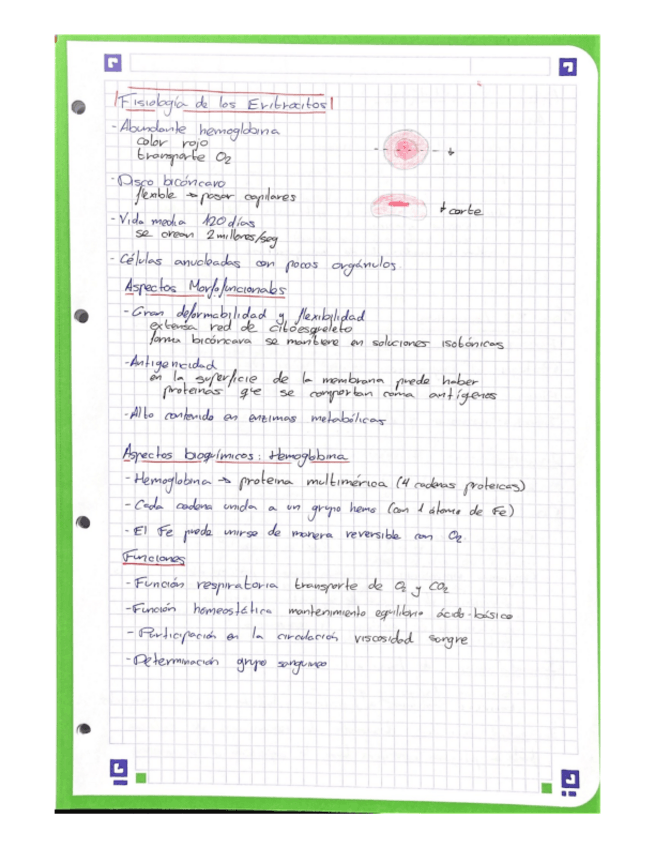 Fisiología de los Eritrocitos
- Abundante hemoglobina
color rojo
transporte O2
- Disco bicóncavo
flexible → pasar capilares
+ corte
- Vida media 120 días
se crean 2 millones/seg
- Células anucleadas con pocos orgánulos
Aspectos Morfofuncionales
- Gran deformabilidad y flexibilidad
extensa red de citoesqueleto
forma bicóncava se mantiene en soluciones isotónicas
- Antigenicidad
en la superficie de la membrana puede haber
proteínas que se comportan como antígenos
- Alto contenido en enzimas metabólicas
Aspectos bioquímicos: Hemoglobina
- Hemoglobina → proteína multimérica (4 cadenas proteicas)
- Cada cadena unida a un grupo hemo (con 1 átomo de Fe)
- El Fe puede unirse de manera reversible con O2
Funciones
- Función respiratoria transporte de O2 y CO2
- Función homeostática mantenimiento equilibrio ácido-básico
- Participación en la circulación viscosidad sangre
- Determinación grupo sanguíneo